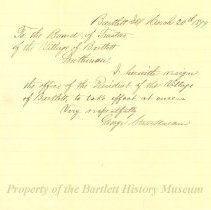 Bartlett Ill March 20th 1899
To the Board of Trustees
of the Village of Bartlett
Gentlemen
I herewith resign
the office of the President of the Village
of Bartlett, to take effect at once
Very respectfully
George Struckman
Property of the Bartlett History Museum